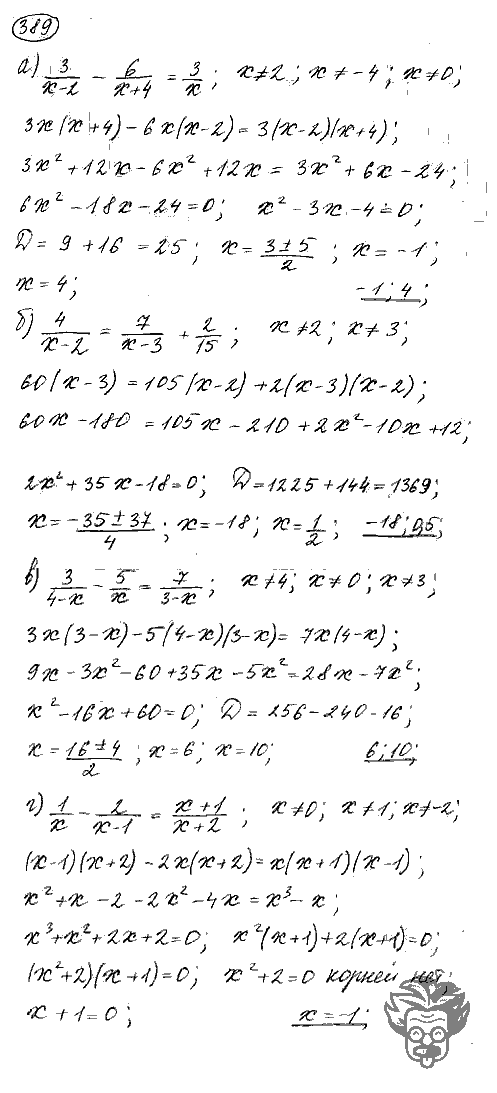 389
а) 3/(x-2) - 6/(x+4) = 3/x; x≠2; x≠-4; x≠0;
3x(x+4)-6x(x-2)=3(x-2)(x+4);
3x²+12x-6x²+12x=3x²+6x-24;
6x²-18x-24=0; x²-3x-4=0;
D=9+16=25; x=(3±5)/2; x=-1;
x=4; -1; 4;
б) 4/(x-2) = 7/(x-3) + 2/15; x≠2; x≠3;
60(x-3)=105(x-2)+2(x-3)(x-2);
60x-180=105x-210+2x²-10x+12;
2x²+35x-18=0; D=1225+144=1369;
x=(-35±37)/4; x=-18; x=1/2; -18; 0,5;
в) 3/(4-x) - 5/x = 7/(3-x); x≠4; x≠0; x≠3;
3x(3-x)-5(4-x)(3-x)=7x(4-x);
9x-3x²-60+35x-5x²=28x-7x²;
x²-16x+60=0; D=256-240-16;
x=(16±4)/2; x=6; x=10; 6; 10;
г) 1/x - 2/(x-1) = (x+1)/(x+2); x≠0; x≠1; x≠-2;
(x-1)(x+2)-2x(x+2)=x(x+1)(x-1);
x²+x-2-2x²-4x=x³-x;
x³+x²+2x+2=0; x²(x+1)+2(x+1)=0;
(x²+2)(x+1)=0; x²+2=0 корней нет;
x+1=0; x=-1;